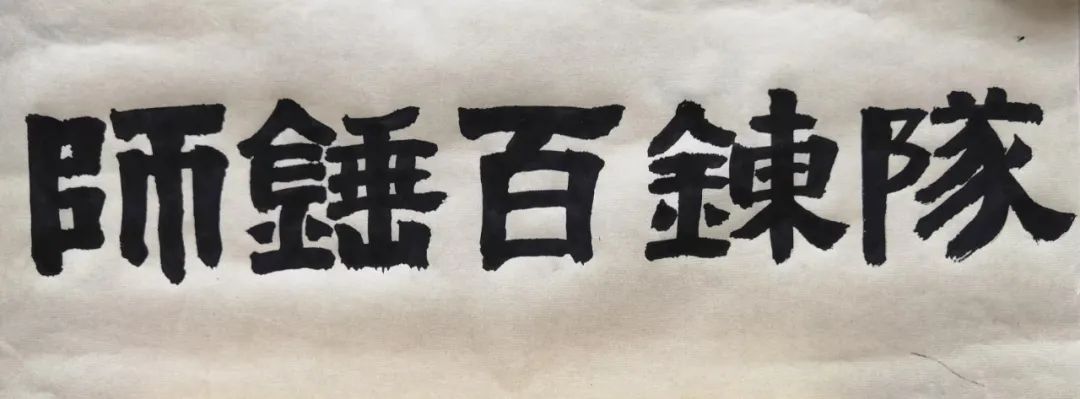 師錘百鍊隊